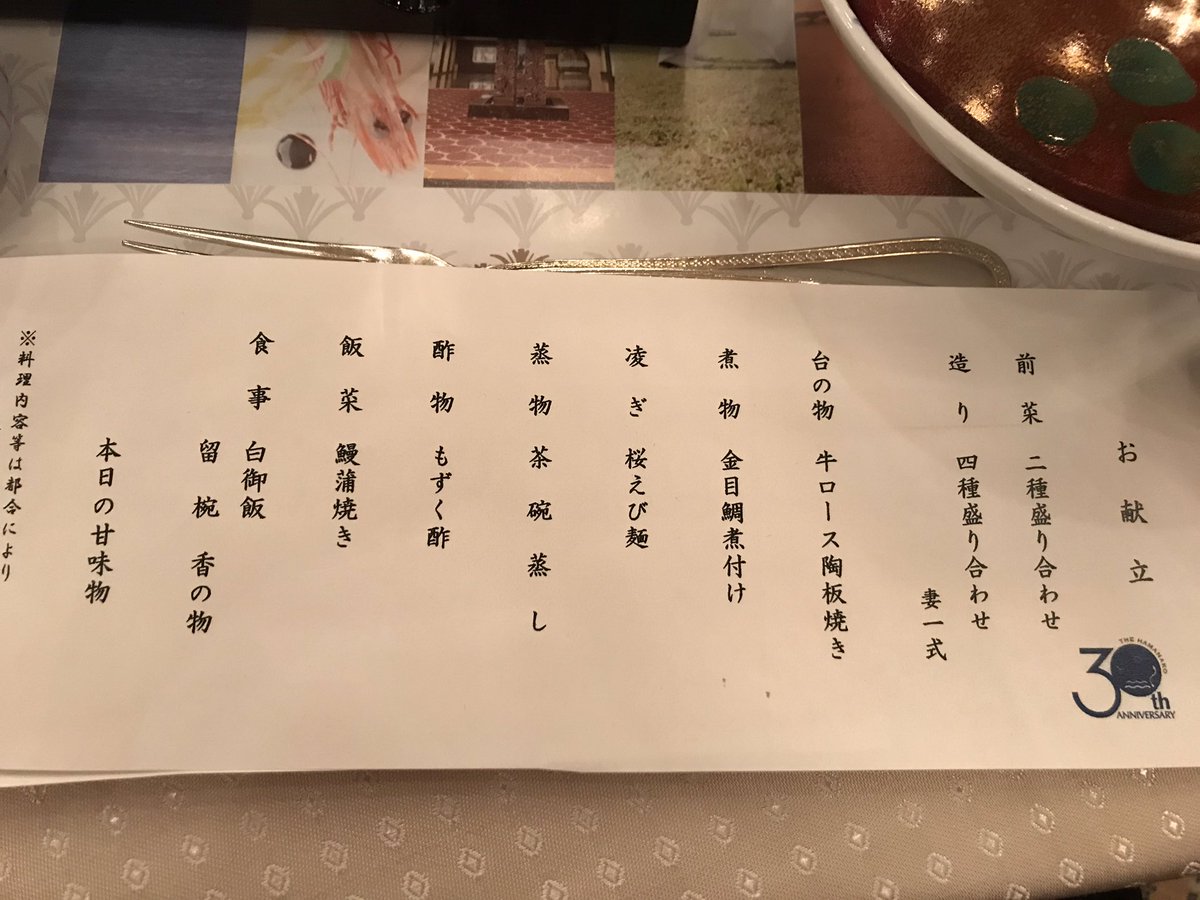 お献立
前菜 二種盛り合わせ
造り 四種盛り合わせ
妻一式
台の物 牛ロース陶板焼き
煮物 金目鯛煮付け
凌ぎ 桜えび麺
蒸物 茶碗蒸し
酢物 もずく酢
飯菜 鰻蒲焼き
食事 白御飯
留椀 香の物
本日の甘味物
※料理内容等は都合により
THE HAMANAKO
30th
ANNIVERSARY